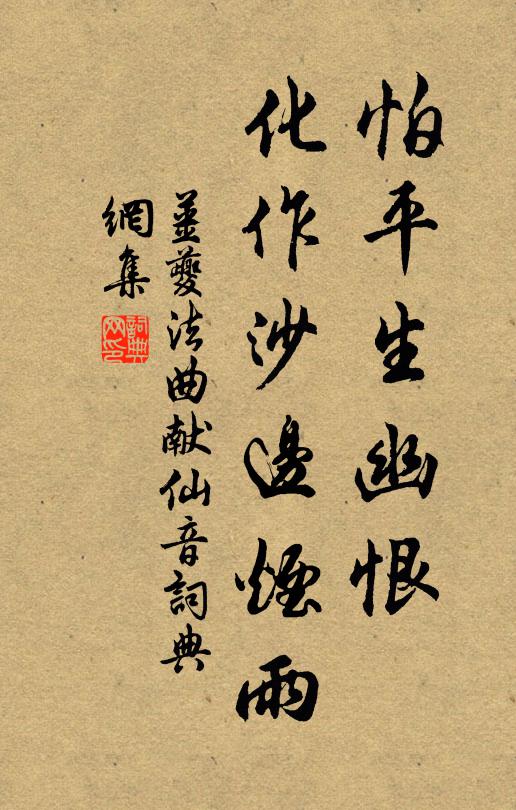 怕平生幽恨
化作沙邊煙雨
姜夔法曲献仙音詞典
網集
詞典
网印